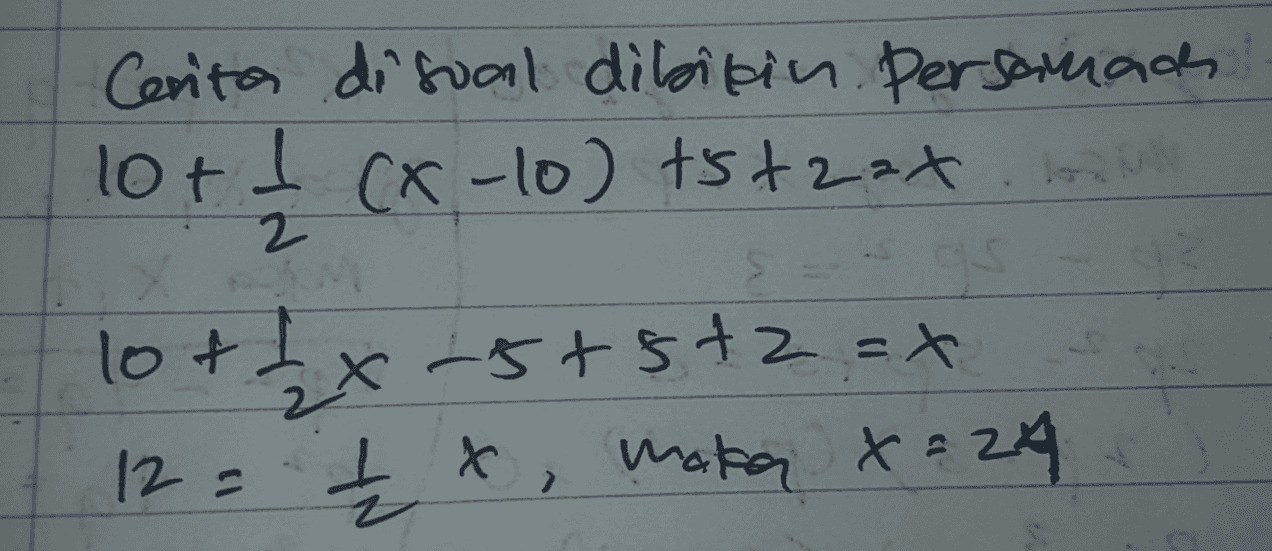 Cerita di soal dibikin Persamaan
10 + 1/2 (x - 10) + 5 + 2 = x
10 + 1/2 x - 5 + 5 + 2 = x
12 = 1/2 x, maka x = 24